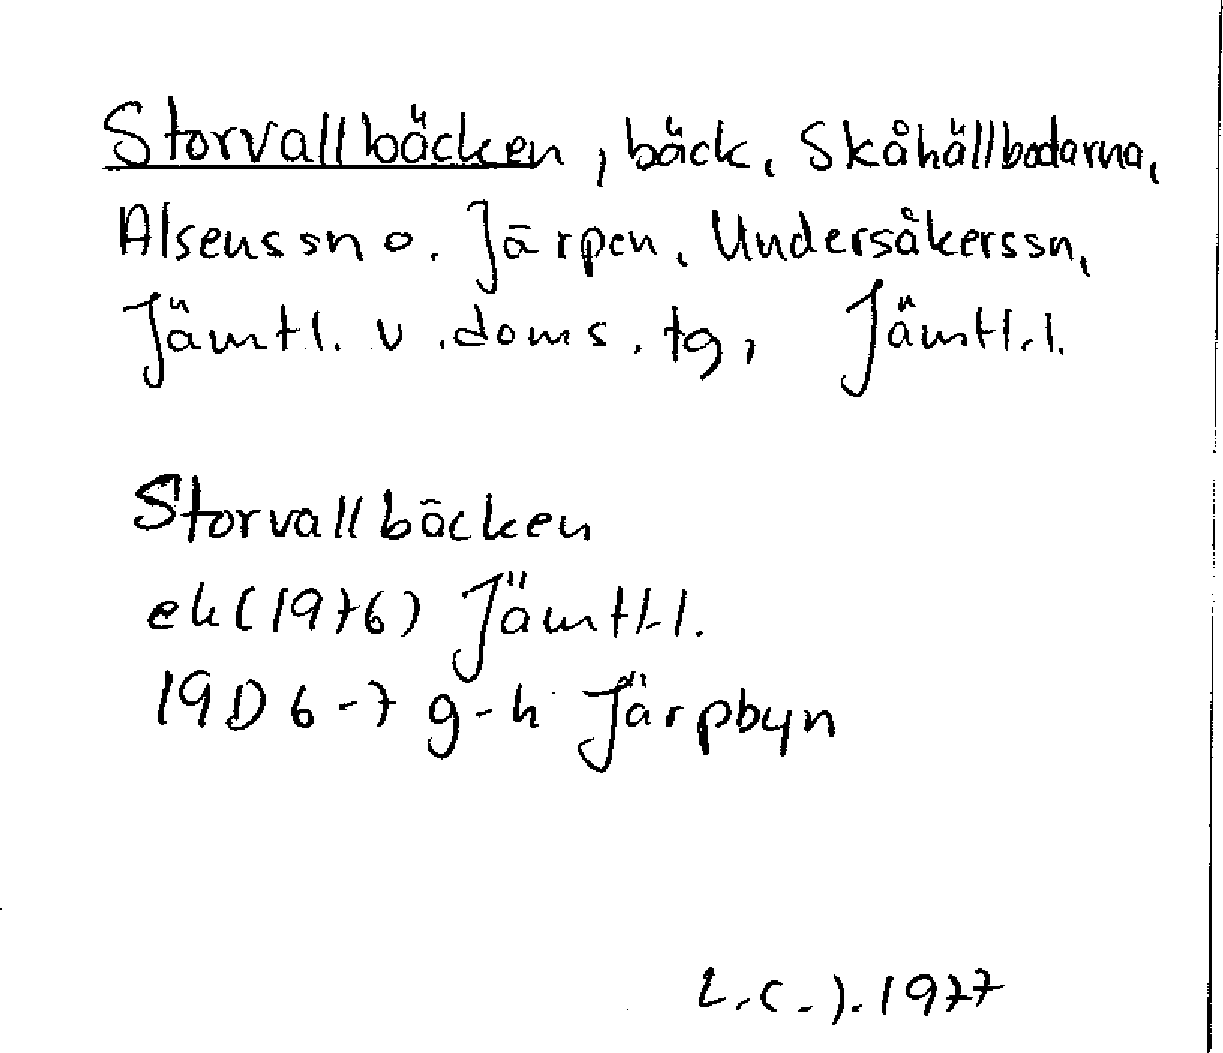 Storvallbäcken, bäck, Skåhällbodarna,
Alsens sn o. Järpen, Undersåkers sn,
Jämtl. v. doms. tg, Jämtl. l.
Storvallbäcken
ek (1976) Jämtl. l.
19D 6-7 g-h Järpbyn
L.C.J. 1977